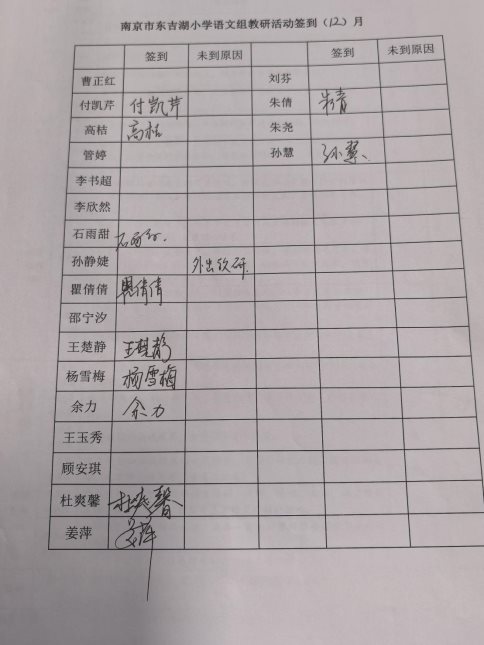 南京市东吉湖小学语文组教研活动签到（12）月
签到 未到原因 签到 未到原因
曹正红 刘芬
付凯芹 付凯芹 朱倩 朱倩
高桔 高桔 朱尧
管婷 孙慧 孙慧
李书超
李欣然
石雨甜 石雨甜
孙静婕 外出教研
瞿倩倩 瞿倩倩
邵宁汐
王楚静 王楚静
杨雪梅 杨雪梅
余力 余力
王玉秀
顾安琪
杜爽馨 杜爽馨
姜萍 姜萍